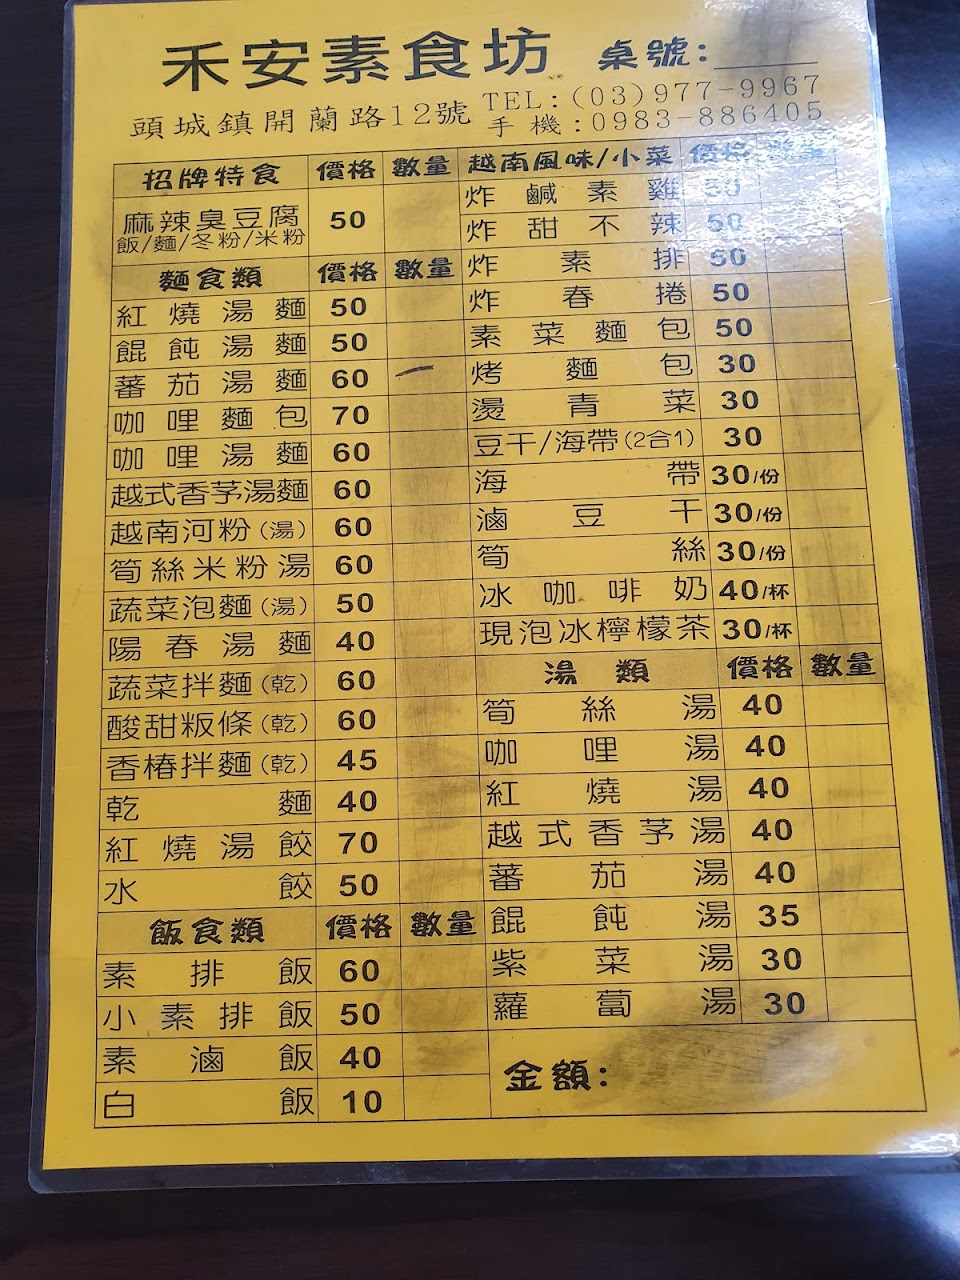 禾安素食坊 桌號:
頭城鎮開蘭路12號 TEL:(03)977-9967
手機:0983-886405
招牌特食 價格 數量
麻辣臭豆腐 50
飯/麵/冬粉/米粉
麵食類 價格 數量
紅燒湯麵 50
餛飩湯麵 50
蕃茄湯麵 60
咖哩麵包 70
咖哩湯麵 60
越式香茅湯麵 60
越南河粉(湯) 60
筍絲米粉湯 60
蔬菜泡麵(湯) 50
陽春湯麵 40
蔬菜拌麵(乾) 60
酸甜粄條(乾) 60
香椿拌麵(乾) 45
乾麵 40
紅燒湯餃 70
水餃 50
飯食類 價格 數量
素排飯 60
小素排飯 50
素滷飯 40
白飯 10
越南風味/小菜 價格 數量
炸鹹素雞 50
炸甜不辣 50
炸素排 50
炸春捲 50
素菜麵包 50
烤麵包 30
燙青菜 30
豆干/海帶(2合1) 30
海帶 30/份
滷豆干 30/份
筍絲 30/份
冰咖啡奶 40/杯
現泡冰檸檬茶 30/杯
湯類 價格 數量
筍絲湯 40
咖哩湯 40
紅燒湯 40
越式香茅湯 40
蕃茄湯 40
餛飩湯 35
紫菜湯 30
蘿蔔湯 30
金額: